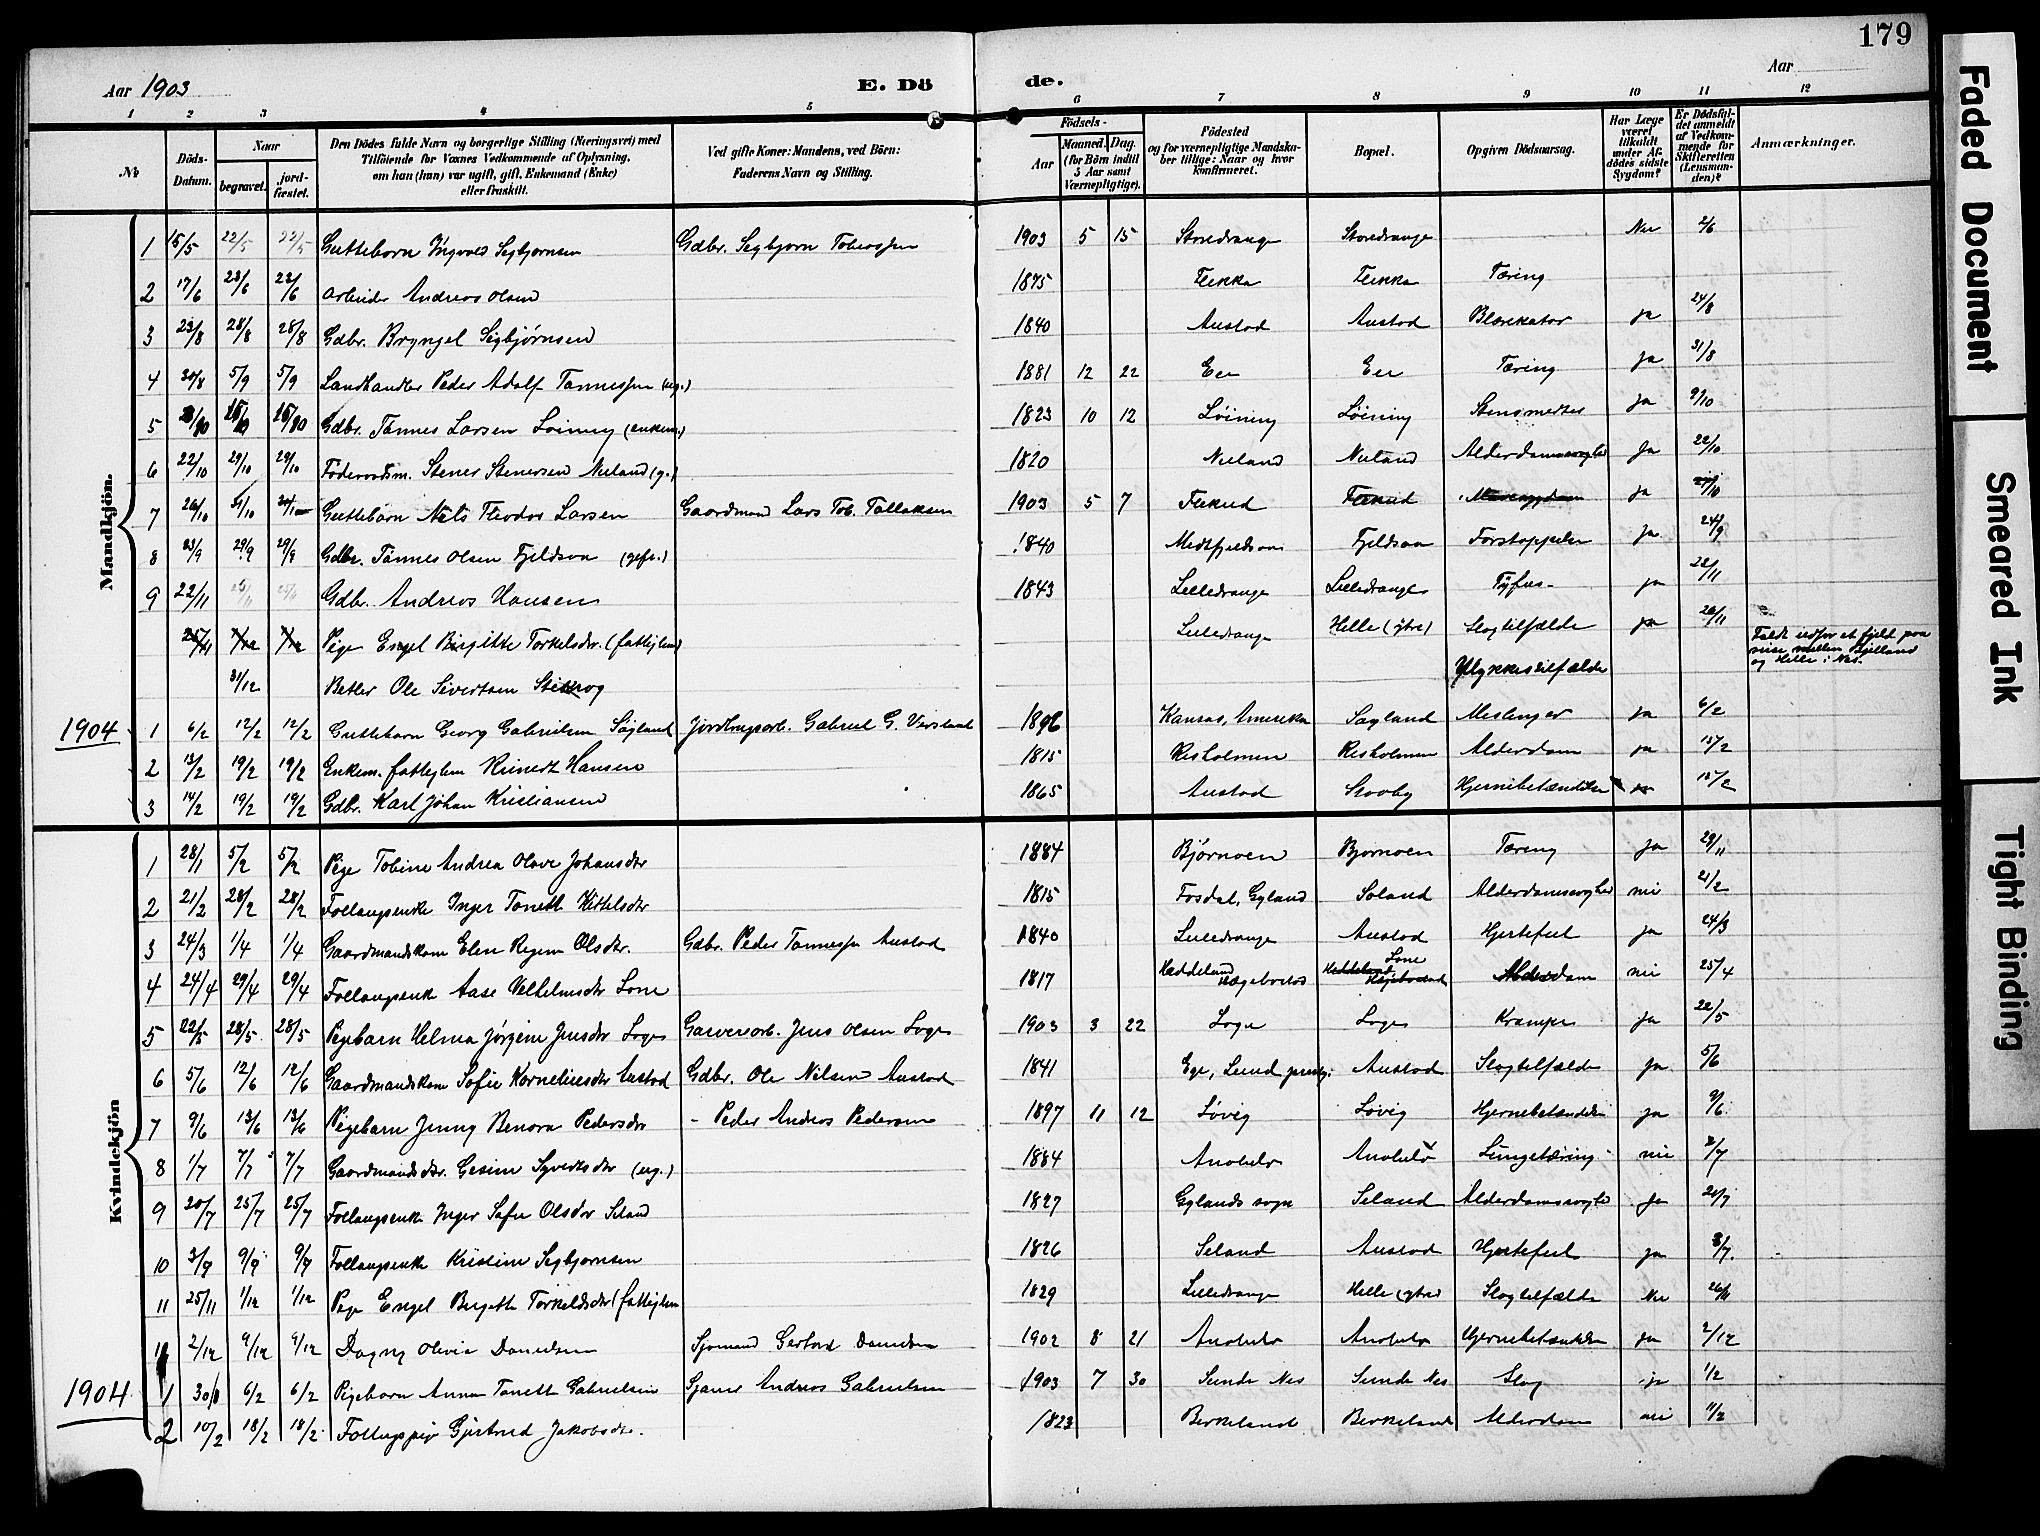 179
Aar 1903
E. Dö
de.
Aar
1 2 3 4 5 6 7 8 9 10 11 12
№
Döds-Datum.
Naar
begravet.
jord-fæstet.
Den Dödes fulde Navn og borgerlige Stilling (Næringsvei) med
Tilföiende for Voxnes Vedkommende af Oplysning,
om han (hun) var ugift, gift, Enkemand (Enke)
eller fraskilt.
Ved gifte Koner: Mandens, ved Börn:
Faderens Navn og Stilling.
Födsels-
Aar
Maaned. Dag.
(for Börn indtil
5 Aar samt
Værnepligtige).
Födested
og for værnepligtige Mandska-
ber tillige: Naar og hvor
konfirmeret.
Bopæl.
Opgiven Dödsaarsag.
Har Læge
været
tilkaldt
under Af-
dødes sidste
Sygdom?
Er Dödsfal-
det anmeldt
af Vedkom-
mende for
Skifteretten
(Lensman-
den)?
Anmærkninger.
Mandkjön.
1 15/5 22/5 22/5 Guttebarn Ingvald Sigbjørnsen Gdbr. Sigbjørn Tobiassen 1903 5 15 Storedrange Storedrange Nei 2/6
2 17/6 23/6 23/6 Arbeider Andreas Olsen 1875 Flikka Flikka Tæring
3 23/8 28/8 28/8 Gdbr. Bryngel Sigbjørnsen 1840 Austad Austad Blærekatar ja 24/8
4 30/8 5/9 5/9 Landhandler Peder Adolf Tønnessen (ug.) 1881 12 22 Eie Eie Tæring ja 31/8
5 Gdbr. Tønnes Larsen Løining (enkem.) 1823 10 12 Løining Løining Stensmerter ja 9/10
6 22/10 29/10 29/10 Føderaadsm. Stener Stenersen Nuland (g.) 1820 Nuland Nuland Alderdomssvaghed ja 22/10
7 26/10 31/10 Guttebarn Nils Teodor Larsen Gaardmand Lars Tob. Tallaksen 1903 5 7 Flikeid Flikeid Mavesygdom ja 27/10
8 23/9 29/9 29/9 Gdbr. Tønnes Olsen Fjeldsaa (gift.) 1840 Midtfjeldsaa Fjeldsaa Forstoppelse ja 24/9
9 22/11 Gdbr. Andreas Hansen 1843 Lilledrange Lilledrange Tyfus ja 22/11
25/11 1/12 1/12 Pige Engel Birgitte Torkelsdtr. (fattiglem) Lilledrange Helle (ytre) Slagtilfælde ja 26/11
31/12 Betler Ole Sivertsen Ulykkestilfælde Faldt udfor et fjeld paa
mellem
og Helle i Nes.
1904 1 6/2 12/2 12/2 Guttebarn Georg Gabrielsen Søyland Gabriel G. 1896 Kansas, Amerika Søyland Meslinger ja 6/2
2 13/2 19/2 19/2 Enkem. fattiglem Reinert Hansen 1815 Risholmen Risholmen Alderdom ja 15/2
3 14/2 19/2 19/2 Gdbr. Karl Johan Kristiansen 1865 Austad Hjernebetændelse 15/2
Kvindekjön
1 28/1 5/2 5/2 Pige Tobine Andrea Olave Johansdtr 1884 Bjørnøen Bjørnøen Tæring ja 29/11
2 21/2 28/2 28/2 Inger Tonette Kittelsdtr 1815 Fosdal, Gyland Søland Alderdomssvaghed nei 21/2
3 24/3 1/4 1/4 Gaardmandskone Elen Regine Olsdtr. Gdbr. Peder Tønnessen Austad 1840 Lilledrange Austad Hjertefeil ja 24/3
4 24/4 29/4 29/4 Aase Vilhelmsdtr Lone 1817 Heddeland Hægebostad Lone Alderdom nei 25/4
5 22/5 28/5 28/5 Pigebarn Helma Jørgine Jensdtr Loge Garveriarb. Jens Olsen Loge 1903 3 22 Loge Loge Krampe ja 22/5
6 5/6 12/6 12/6 Gaardmandskone Sofie Korneliusdtr Austad Gdbr. Ole Nilsen Austad 1841 Ege, Lund prestg. Austad Slagtilfælde ja 5/6
7 9/6 13/6 13/6 Pigebarn Jenny Benora Pedersdtr - Peder Andreas Pedersen 1897 11 12 Løvig Løvig Hjernebetændelse ja 9/6
8 1/7 7/7 7/7 Gaardmandsdtr. Gesine Syvertsdtr (ug.) 1884 Anabeløv Lungetæring nei 2/7
9 20/7 25/7 25/7 Inger Sofie Olsdtr Seland 1827 Gylands sogn Seland Alderdomssvaghed ja 20/7
10 3/7 9/7 9/7 Kristine Sigbjørnsen 1826 Seland Austad Hjertefeil ja 3/7
11 25/11 1/12 1/12 Pige Engel Birgitte Torkeldsdtr (fattiglem 1829 Lilledrange Helle (ytre) Slagtilfælde Nei 26/11
2/12 9/12 9/12 Dagny Olivia Danielsen Sjømand Danielsen 1902 8 21 Hjernebetændelse ja 2/12
1904 1 6/2 6/2 Pigebarn Anna Tonette Gabrielsen Andreas Gabrielsen 1903 7 30 Sunde Nes Sunde Nes Slag ja 1/2
2 10/2 18/2 18/2 Gjertrud Jakobsdtr. 1823 Birkeland Birkeland Alderdom nei 11/2
Faded Document
Smeared Ink
Tight Binding